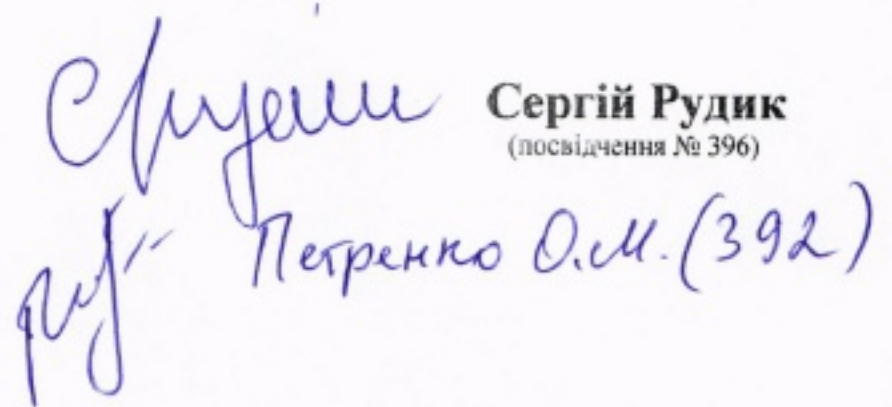 Сергій Рудик
(посвідчення № 396)
Петренко О.М. (392)